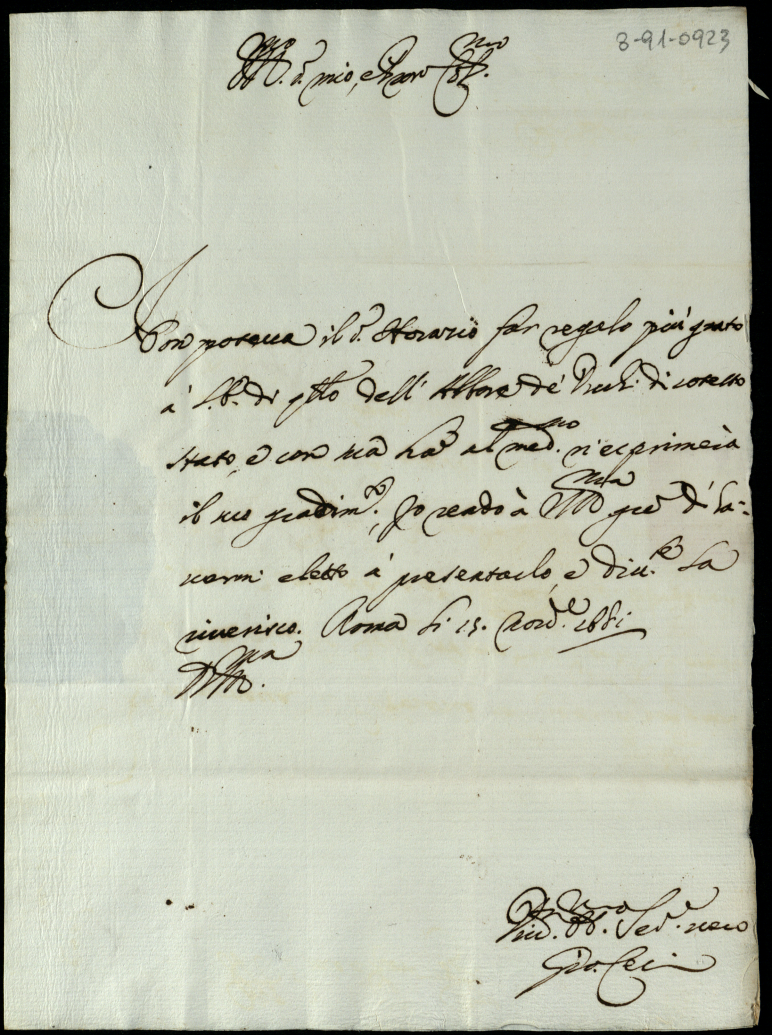 3-91-0923
Ill.mo S.r mio, e Pron Col.mo
Non poteua il S.r Horatio far regalo più grato
à S.B. di q.llo dell' Albore de' di cotesto
stato, e con ha al med.mo n'esprimerà
il suo gradim.to, Io rendo à V.S. Ill.ma gr.e d' ha-
uermi eletto à presentarlo, e diu.te la
riuerisco. Roma li 15. Nou.e 1681
V.S. Ill.ma
Ser.e uero
Gio. Ceci